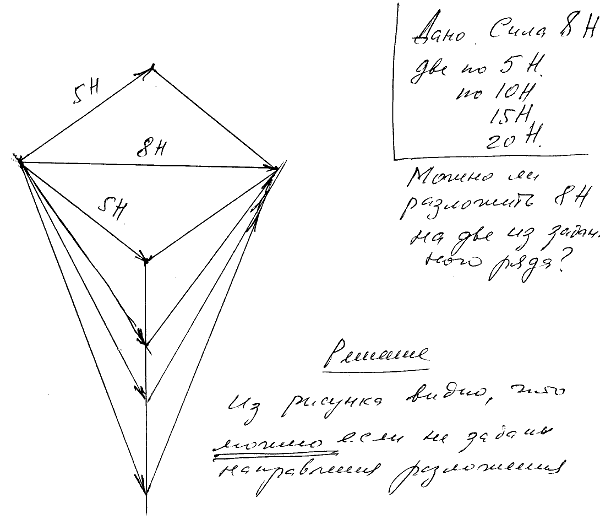 5Н
8Н
5Н
Дано. Сила 8 Н
две по 5 Н.
по 10Н
15Н,
20 Н.
Можно ли
разложить 8 Н
на две из задан
ного ряда?
Решение
Из рисунка видно, что
можно если не заданы
направления разложения